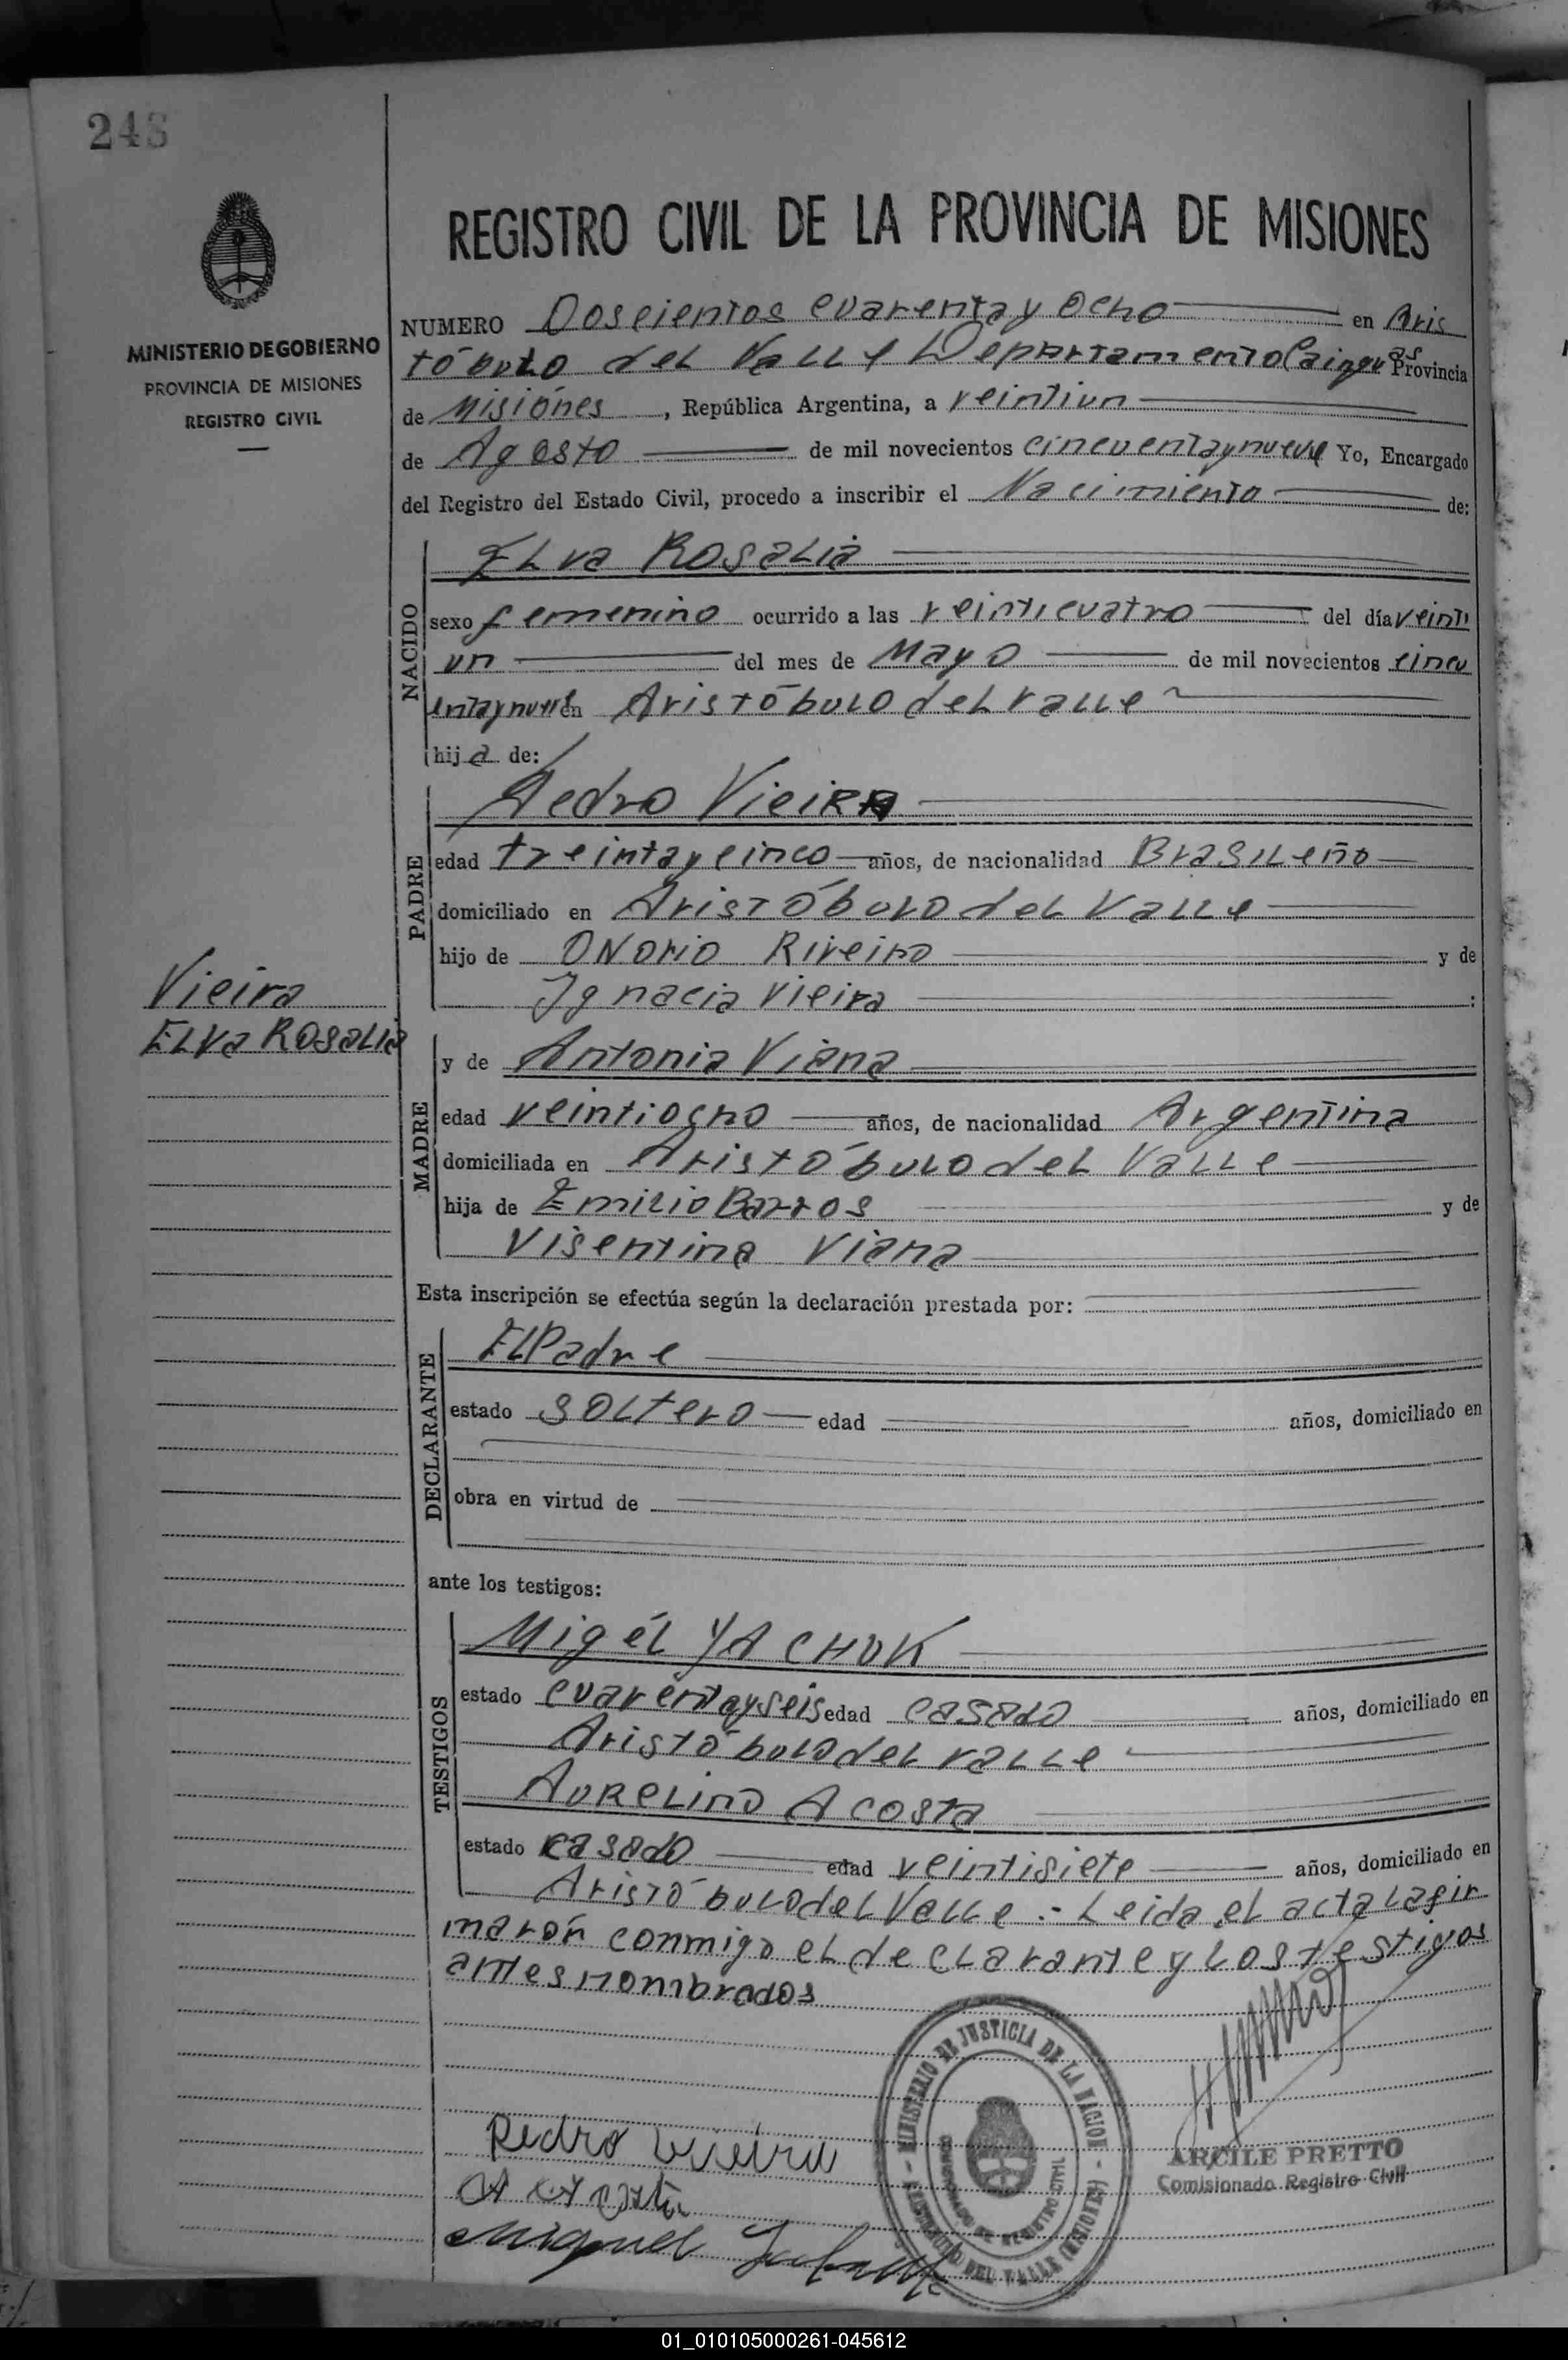 248
MINISTERIO DE GOBIERNO
PROVINCIA DE MISIONES
REGISTRO CIVIL
REGISTRO CIVIL DE LA PROVINCIA DE MISIONES
NUMERO Doscientos cuarenta y ocho en Aris
tóbulo del Valle Departamento Cainguas Provincia
de Misiones, República Argentina, a veintiun
de Agosto de mil novecientos cincuentaynueve Yo, Encargado
del Registro del Estado Civil, procedo a inscribir el Nacimiento de:
NACIDO
Elva Rosalia
sexo femenino ocurrido a las veinticuatro del día veinti
un del mes de Mayo de mil novecientos cincu
entaynueve en Aristóbulo del Valle
hija de:
PADRE
Pedro Vieira
edad treintaycinco años, de nacionalidad Brasileño
domiciliado en Aristóbulo del Valle
hijo de Onorio Riveiro y de
Ignacia Vieira :
Vieira
Elva Rosalia
MADRE
y de Antonia Viana
edad veintiocho años, de nacionalidad Argentina
domiciliada en Aristóbulo del Valle
hija de Emilio Barros y de
Visentina Viana
Esta inscripción se efectúa según la declaración prestada por:
DECLARANTE
El Padre
estado soltero edad años, domiciliado en
obra en virtud de
ante los testigos:
TESTIGOS
Migél YACHUK
estado cuarentayseis edad casado años, domiciliado en
Aristóbulo del Valle
Aurelino Acosta
estado casado edad veintisiete años, domiciliado en
Aristóbulo del Valle.- Leida el acta la fir
marón conmigo el declarante y los testigos
antes nombrados
MINISTERIO DE JUSTICIA DE LA NACION
REGISTRO CIVIL
DEL VALLE (MISIONES)
ARCILE PRETTO
Comisionado Registro Civil
Pedro Vieira
A Acosta
Miguel
01_010105000261-045612